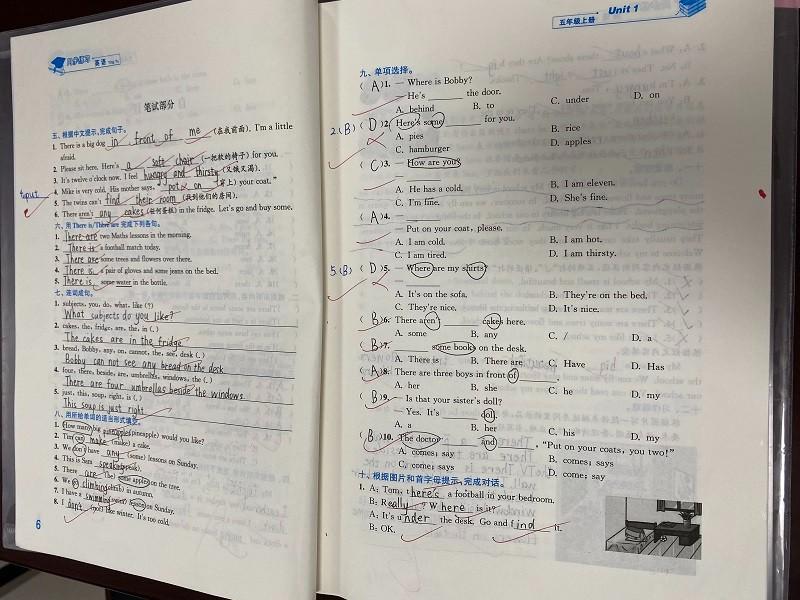 英语
笔试部分
五、根据中文提示,完成句子。
1. There is a big dog in front of me (在我前面). I'm a little
afraid.
2. Please sit here. Here's a soft chair (一把软的椅子) for you.
3. It's twelve o'clock now. I feel hungry and thirsty (又饿又渴).
4. Mike is very cold. His mother says, "put on (穿上) your coat."
5. The twins can't find their room (找到他们的房间).
6. There aren't any cakes (任何蛋糕) in the fridge. Let's go and buy some.
六、用 There is/There are 完成下列各句。
1. There are two Maths lessons in the morning.
2. There is a football match today.
3. There are some trees and flowers over there.
4. There is a pair of gloves and some jeans on the bed.
5. There is some water in the bottle.
七、连词成句。
1. subjects, you, do, what, like (?)
What subjects do you like?
2. cakes, the, fridge, are, the, in (.)
The cakes are in the fridge.
3. bread, Bobby, any, on, cannot, the, see, desk (.)
Bobby can not see any bread on the desk.
4. four, there, beside, are, umbrellas, windows, the (.)
There are four umbrellas beside the windows.
5. just, this, soup, right, is (.)
This soup is just right.
八、用所给单词的适当形式填空。
1. How many big pineapples (pineapple) would you like?
2. Tim can make (make) a cake.
3. We don't have any (some) lessons on Sunday.
4. This is Sam speaking
5. There are the some apples on the tree.
6. We climbing (climb) in autumn.
7. I have a swimming lesson on Sunday.
8. I don't (not) like winter. It's too cold.
6
五年级上册
Unit 1
九、单项选择。
( A )1. — Where is Bobby?
— He's the door.
A. behind B. to C. under D. on
2.(B) ( D )2. Here's some for you.
A. pies B. rice
C. hamburger D. apples
( C )3. — How are you?
—
A. He has a cold. B. I am eleven.
C. I'm fine. D. She's fine.
( A )4. —
— Put on your coat, please.
A. I am cold. B. I am hot.
C. I am tired. D. I am thirsty.
5.(B) ( D )5. — Where are my shirts?
—
A. It's on the sofa. B. They're on the bed.
C. They're nice. D. It's nice.
( B )6. There aren't cakes here.
A. some B. any C. / D. a
( B )7. some books on the desk.
A. There is B. There are C. Have D. Has
( A )8. There are three boys in front of .
A. her B. she C. he D. my
( B )9. — Is that your sister's doll?
— Yes. It's doll.
A. a B. her C. his D. my
( B )10. The doctor and , "Put on your coats, you two!"
A. comes; say B. comes; says
C. come; says D. come; say
十、根据图片和首字母提示,完成对话。
1. A: Tom, there's a football in your bedroom.
B: Really? Where is it?
A: It's under the desk. Go and find it.
B: OK.